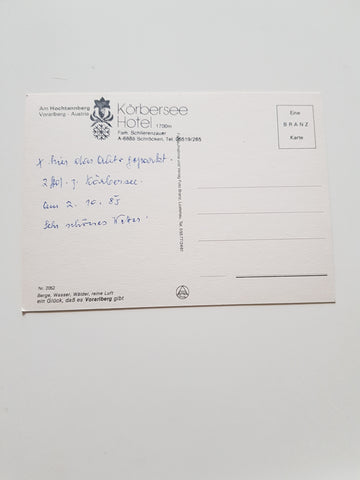 Am Hochtannberg
Vorarlberg - Austria
Körbersee
Hotel 1700m
Fam. Schlierenzauer
A-6888 Schröcken, Tel. 05519/265
Eine
BRANZ
Karte
x hier das Auto geparkt.
z. Körbersee
am 2. 10. 85
Sehr schönes Wetter!
Nr. 2062
Berge, Wasser, Wälder, reine Luft
ein Glück, daß es Vorarlberg gibt